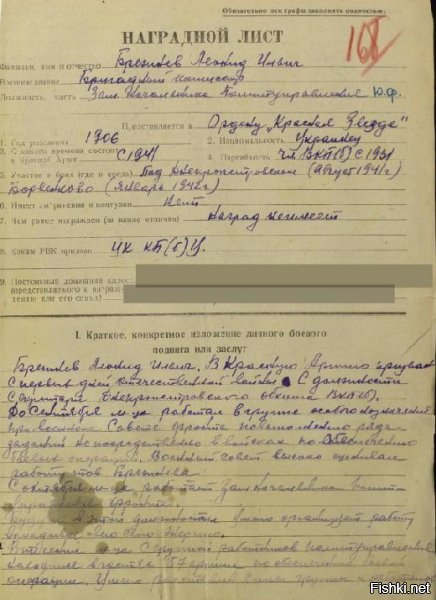 Обязательно все графы заполнять полностью.
НАГРАДНОЙ ЛИСТ
168
Фамилия, имя и отчество Брежнев Леонид Ильич
Военное звание Бригадный комиссар
Должность, часть Зам Начальника Политуправления Ю.Ф.
Представляется к Ордену „Красная Звезда"
1. Год рождения 1906 2. Национальность Украинец
3. С какого времени состоит в Красной Армии С 1941 4. Партийность Чл ВКП(б) с 1931
5. Участие в боях (где и когда) Под Днепропетровском (Август 1941г)
Барвенково (Январь 1942г)
6. Имеет ли ранения и контузии Нет
7. Чем ранее награжден (за какие отличия) Наград не имеет
8. Каким РВК призван ЦК КП(б)У.
9. Постоянный домашний адрес
(представляемого к награждению или его семьи)
I. Краткое, конкретное изложение личного боевого
подвига или заслуг
Брежнев Леонид Ильич, В Красную Армию призван
с первых дней отечественной войны с должности
Секретаря Днепропетровского обкома ВКП(б).
До сентября м-ца работал в группе особого назначения
при военном Совете фронта по выполнению ряда
заданий непосредственно в войсках по обеспечению
боевых операций. Военный совет высоко оценивал
работу тов Брежнева
С октября м-ца работает Зам Начальника Полит-
управления фронта.
в этой должности умело организует работу
В течении м-ца с группой работников политуправления
находился в частях 57 армии по обеспечению боевой
операции. Умело расставив силы группы
Fishki.net